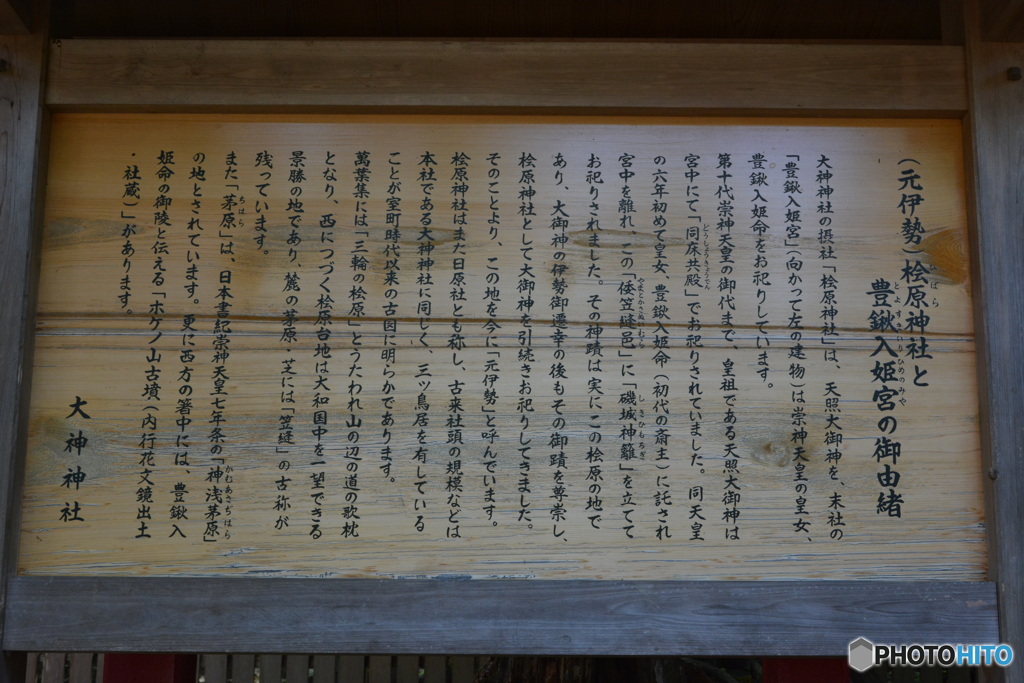 (元伊勢)桧原神社と
豊鍬入姫宮の御由緒
大神神社の摂社「桧原神社」は、天照大御神を、末社の
「豊鍬入姫宮」(向かって左の建物)は崇神天皇の皇女、
豊鍬入姫命をお祀りしています。
第十代崇神天皇の御代まで、皇祖である天照大御神は
宮中にて「同床共殿」でお祀りされていました。同天皇
の六年初めて皇女、豊鍬入姫命(初代の斎主)に託され
宮中を離れ、この「倭笠縫邑」に「磯城神籬」を立てて
お祀りされました。その神蹟は実にこの桧原の地で
あり、大御神の伊勢御遷幸の後もその御蹟を尊崇し、
桧原神社として大御神を引続きお祀りしてきました。
そのことより、この地を今に「元伊勢」と呼んでいます。
桧原神社はまた日原社とも称し、古来社頭の規模などは
本社である大神神社に同じく、三ッ鳥居を有している
ことが室町時代以来の古図に明らかであります。
萬葉集には「三輪の桧原」とうたわれ山の辺の道の歌枕
となり、西につづく桧原台地は大和国中を一望できる
景勝の地であり、麓の茅原・芝には「笠縫」の古称が
残っています。
また「茅原」は、日本書紀崇神天皇七年条の「神浅茅原」
の地とされています。更に西方の箸中には、豊鍬入
姫命の御陵と伝える「ホケノ山古墳(内行花文鏡出土
・社蔵)」があります。
大神神社
PHOTOHITO